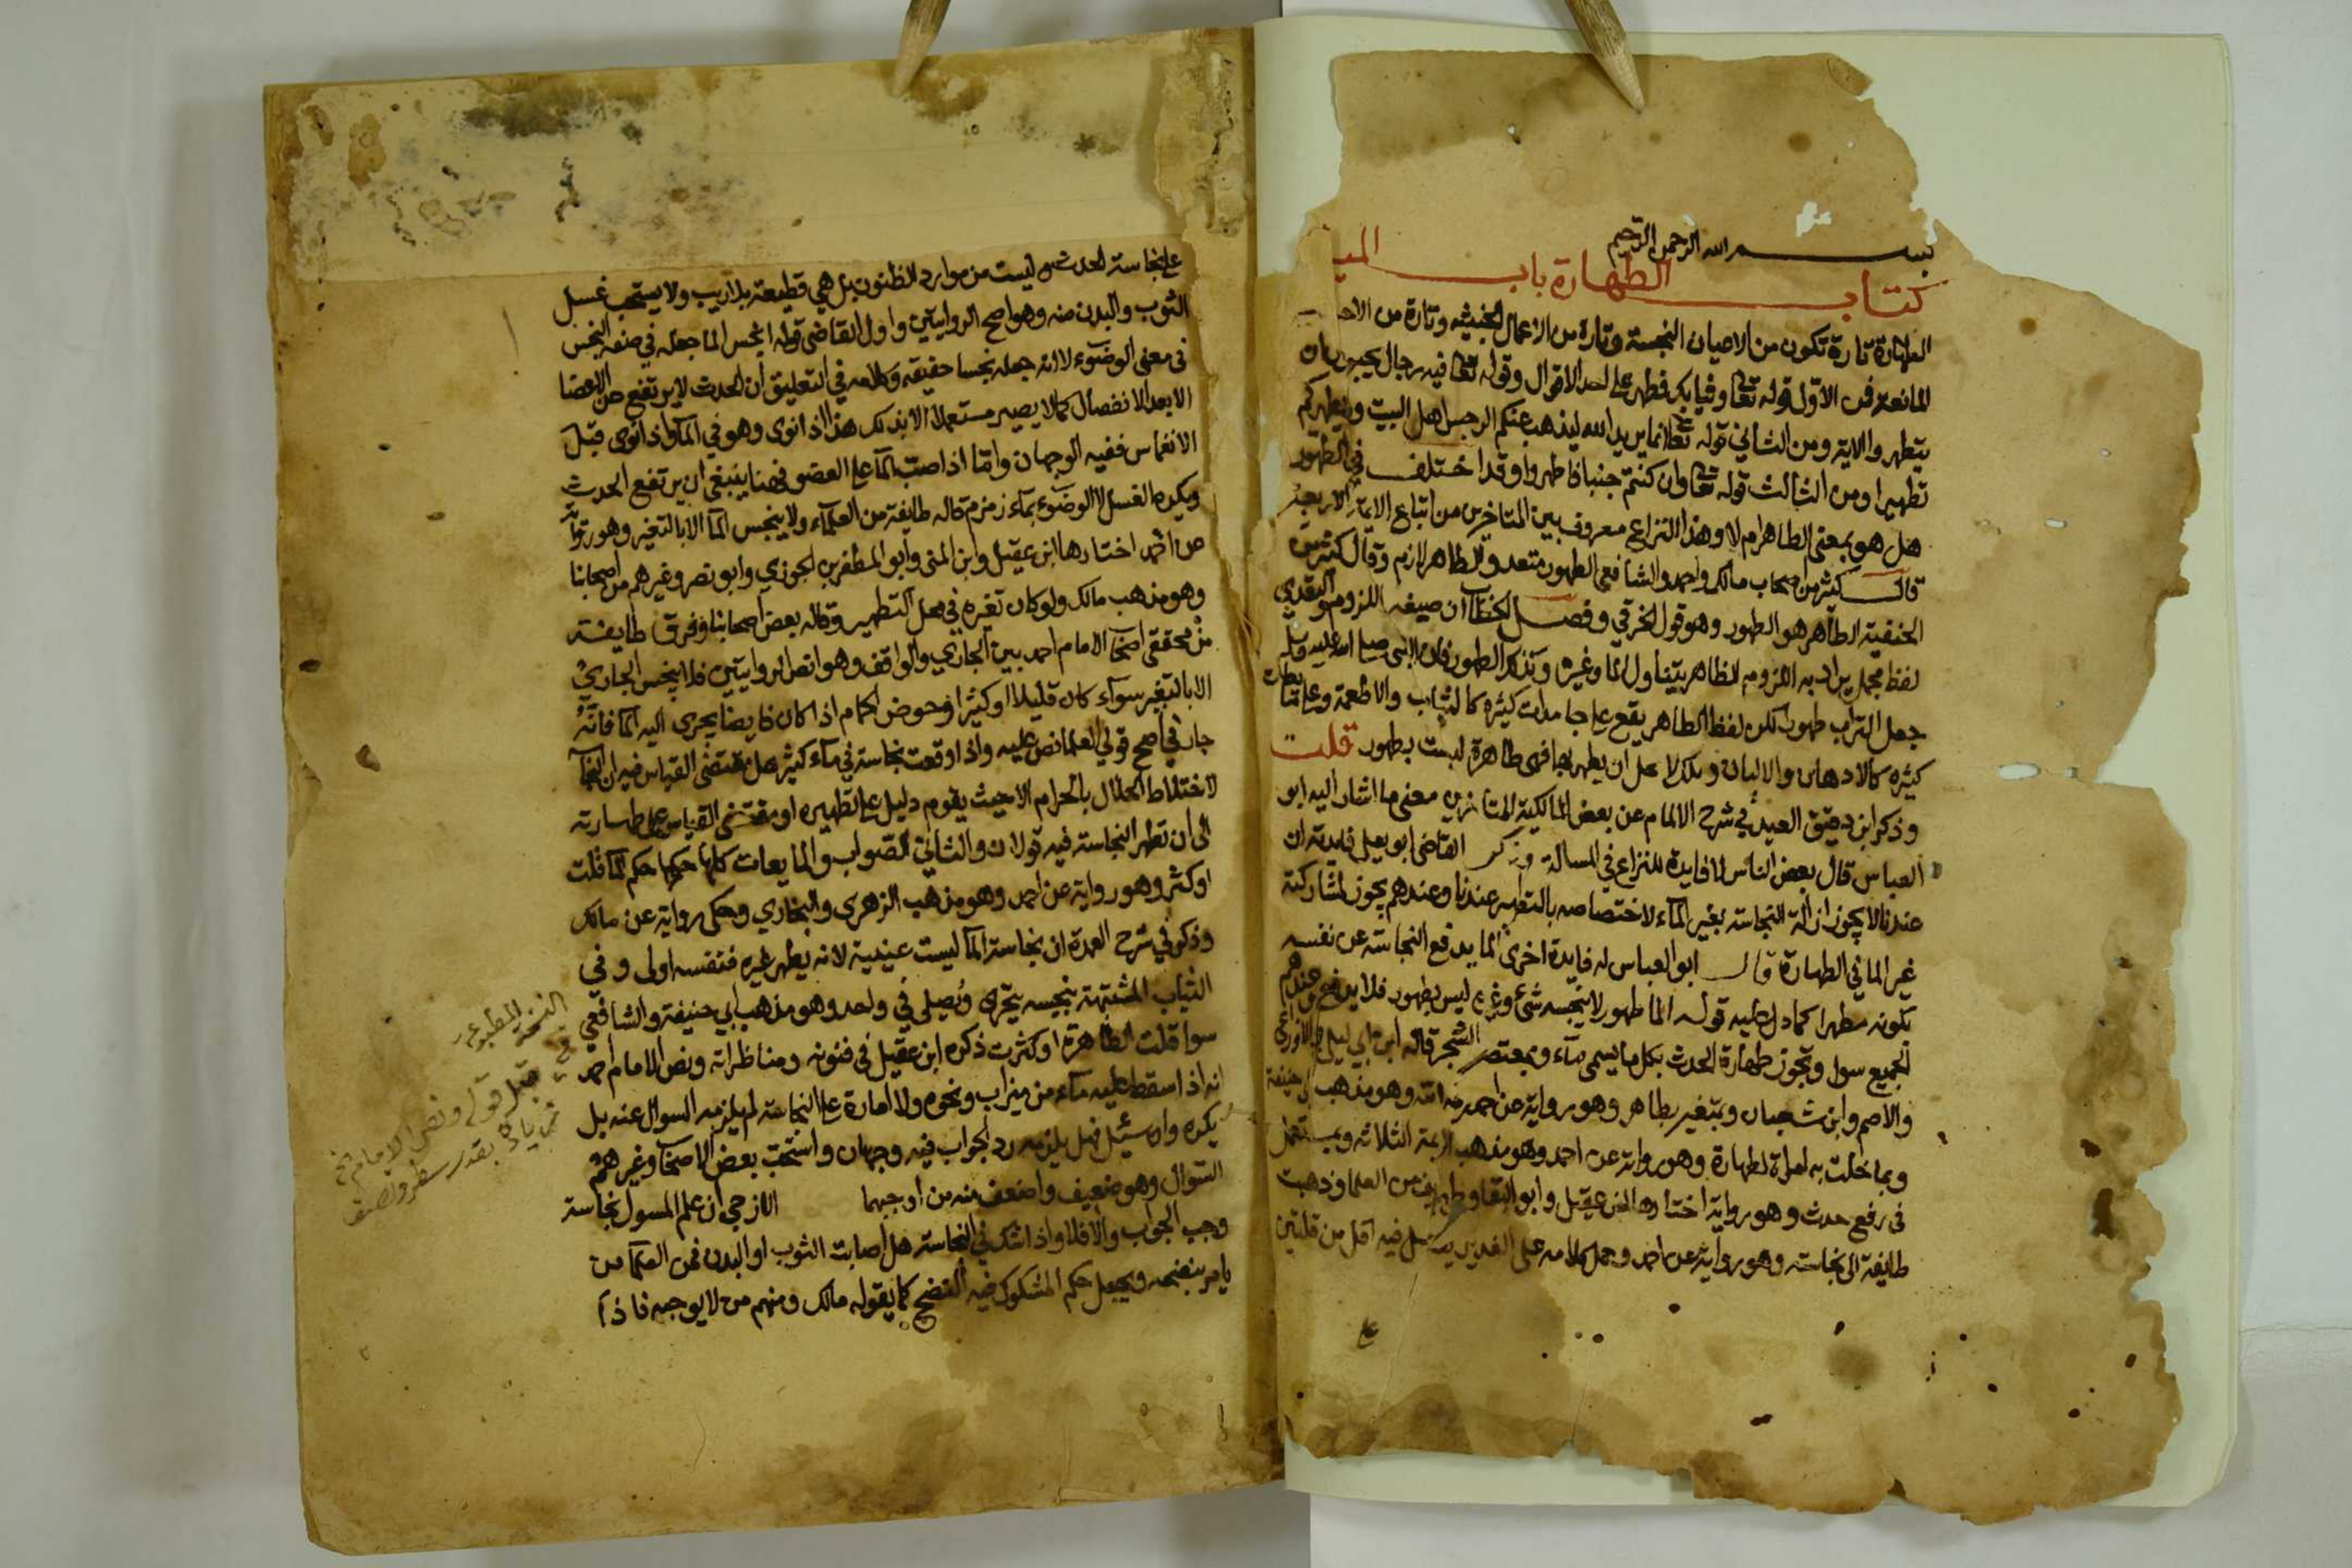 بسم الله الرحمن الرحيم
كتاب الطهارة باب الميا
الطهارة تارة تكون من الاعيان النجسة وتارة من الاعمال الخبيثه وتارة من الاحد
المانعة فمن الاول قوله تعا وثيابك فطهر على احد الاقوال وقوله تعا فيه رجال يحبون ان
يتطهروا الاية ومن الثاني قوله تعا انما يريد الله ليذهب عنكم الرجس اهل البيت ويطهركم
تطهيرا ومن الثالث قوله تعا وان كنتم جنبا فاطهروا وقد اختلف في الطهور
هل هو بمعنى الطاهر ام لا وهذا النزاع معروف بين المتاخرين من اتباع الايمة الاربعة
قال كثير من اصحاب مالك واحمد والشافعي الطهور متعد والطاهر لازم وقال كثير من
الحنفية الطاهر هو الطهور وهو قول الخرقي وفصل الخطاب ان صيغه اللزوم والتعدي
لفظ مجمل يراد به اللزوم الطاهر يتناول الما وغيره وكذلك الطهور فان النبي صلى الله عليه وسلم
جعل التراب طهورا لكن لفظ الطاهر يقع على جامدات كثيره كالثياب والاطعمة وعلى مايعات
كثيره كالادهان والالبان وتلك لا يمكن ان يطهر بها فهي طاهرة ليست بطهور قلت
وذكر ابن دقيق العيد في شرح الالمام عن بعض المالكية المتاخرين معنى ما اشار اليه ابو
العباس قال بعض الناس لا فايدة للنزاع في المسالة وذكر القاضي ابو يعلى فايدته ان
عندنا لا يجوز ازالة النجاسة بغير الماء لاختصاصه بالتطهير عندنا وعندهم يجوز لمشاركة
غير الما في الطهارة قال ابو العباس له فايدة اخرى الما يدفع النجاسة عن نفسه
بكونه مطهرا كما دل عليه قوله الما طهور لا ينجسه شئ وغيره ليس بطهور فلا يدفع وعندهم
الجميع سوا وتجوز طهارة الحدث بكل ما يسمى ماء وبمعتصر الشجر قاله ابن ابي ليلى والاوزاعي
والاصم وابن شعبان وبمتغير بطاهر وهو رواية عن احمد رحمه الله وهو مذهب ابي حنيفة
وبما خلت به امراة لطهارة وهو رواية عن احمد وهو مذهب الايمة الثلاثة وبمستعمل
في رفع حدث وهو رواية اختارها ابن عقيل وابو البقا وطوايف من العلما وذهبت
طايفة الى نجاسته وهو رواية عن احمد وحمل كلامه على الغدير يغتسل فيه اقل من قلتين
على نجاسة الحدث ليست من موارد الظنون بل هي قطيعة بلا ريب ولا يستحب غسل
الثوب والبدن منه وهو اصح الروايتين واول القاضي قوله انجس الما جعله في صفه النجس
في معنى الوضوء لا انه جعله نجسا حقيقه وكلامه في التعليق ان الحدث لا يرتفع من الاعضا
الا بعد الانفصال كما لا يصير مستعملا الا بذلك هذا اذا نوى وهو في الما واذا نوى قبل
الانغماس ففيه الوجهان واما اذا صب الما على العضو فهنا ينبغي ان يرتفع الحدث
ويكره الغسل لا الوضوء بماء زمزم قاله طايفة من العلماء ولا ينجس الما الا بالتغير وهو رواية
عن احمد اختارها ابن عقيل وابن المنى وابو المظفر بن الجوزي وابو نصر وغيرهم من اصحابنا
وهو مذهب مالك ولو كان تغيره في محل التطهير وقاله بعض اصحابنا وفرق طايفة
من محققي اصحاب الامام احمد بين الجاري والواقف وهو انص الروايتين فلا ينجس الجاري
الا بالتغير سواء كان قليلا او كثيرا وحوض الحمام اذا كان فايضا يجري اليه الما فانه
جار في اصح قولي العلما نص عليه واذا وقعت نجاسة في ماء كثير هل مقتضى القياس فيه ان ينجس
لاختلاط الحلال بالحرام الا حيث يقوم دليل على تطهيره او مقتضى القياس على طهارته
الى ان تظهر النجاسة فيه قولان والثاني الصواب والمايعات كلها حكمها حكم الما قلت
او كثر وهو رواية عن احمد وهو مذهب الزهري والبخاري وحكى رواية عن مالك
وذكر في شرح العمدة ان نجاسة الما ليست عينية لانه يطهر غيره فنفسه اولى وفي
الثياب المشتبهة بنجسه يتحرى ويصلي في واحد وهو مذهب ابي حنيفة والشافعي
سوا قلت الطاهرة او كثرت ذكره ابن عقيل في فنونه ومناظراته ونص الامام احمد
انه اذا سقط عليه ماء من ميزاب ونحوه ولا امارة على النجاسة لم يلزمه السوال عنه بل
يكره وان سئل فهل يلزمه رد الجواب فيه وجهان واستحب بعض الاصحاب وغيرهم
السوال وهو ضعيف واضعف منه من اوجبهما الازجي ان علم المسول نجاسة
وجب الجواب والا فلا واذا شك في النجاسة هل اصابت الثوب او البدن فمن العلما من
يامر بنضحه ويجعل حكم المشكوك فيه النضح كما يقوله مالك ومنهم من لا يوجبه فاذا
النسخة المطبوعه
في قبل قوله ونص الامام
زيادة بقدر سطر ونصف